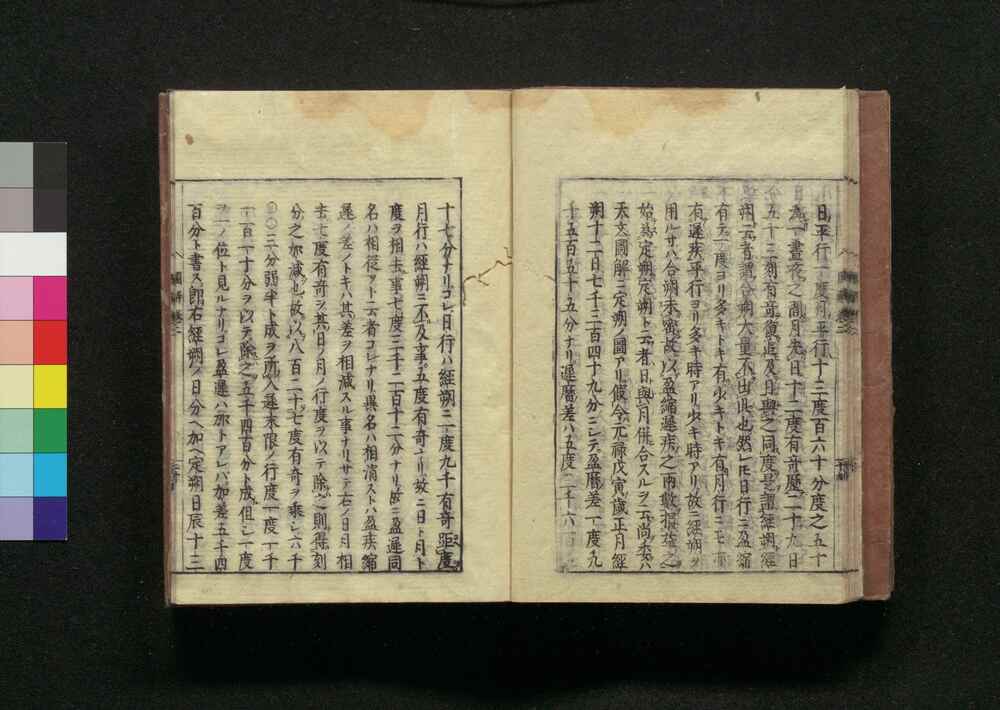 日平行一度月平行十三度百六十分度之五十
為一晝夜之間月先日十二度有奇歷二十九日
五十三刻有奇復追及日與之同度是謂經朔經
朔云者謂合朔大量不出此也然圧日行ニ盈縮
有テ一度ヨリ多キトキ有少キトキ有月行ニモ
有遲疾平行ヨリ多キ時アリ少キ時アリ故ニ經朔ヲ
用ルサハ合朔未密故以盈縮遲疾之両數損益之
始為定朔定朔ト云者日與月併合スルヲ云尚委ハ
天文圖解ニ定朔ノ圖アリ假令元禄戊寅歳正月經
朔十二日七千三百四十九分ニシテ盈曆差一度九
千五百五十五分ナリ遲曆差ハ五度二千六
十七分ナリコレ日行ハ經朔ニ一度九千有奇距度
月行ハ經朔ニ不及事五度有奇ナリ故ニ日ト月ト
度ヲ相去事七度二千二百十二分ナリ故ニ盈遲同
名ハ相從ヲト云者コレナリ異名ハ相消ストハ盈疾縮
遲ノ差ノトキハ其差ヲ相減スル事ナリサテ右ノ日月相
去七度有奇ヲ其日ノ月ノ行度ヲ以テ除之則得刻
分之加減也故以八百二十七度有奇ヲ乘シ六千
〇三分弱半ト成ヲ所入遲末限ノ行度一度一千
一百一十分ヲ以テ除之五千四百分ト成但シ一度
ヲ一ノ位ト見ルナリコレ盈遲ハ加トアレバ加差五千四
百分ト書ス即右經朔ノ日分ヘ加ヘ定朔日辰十三